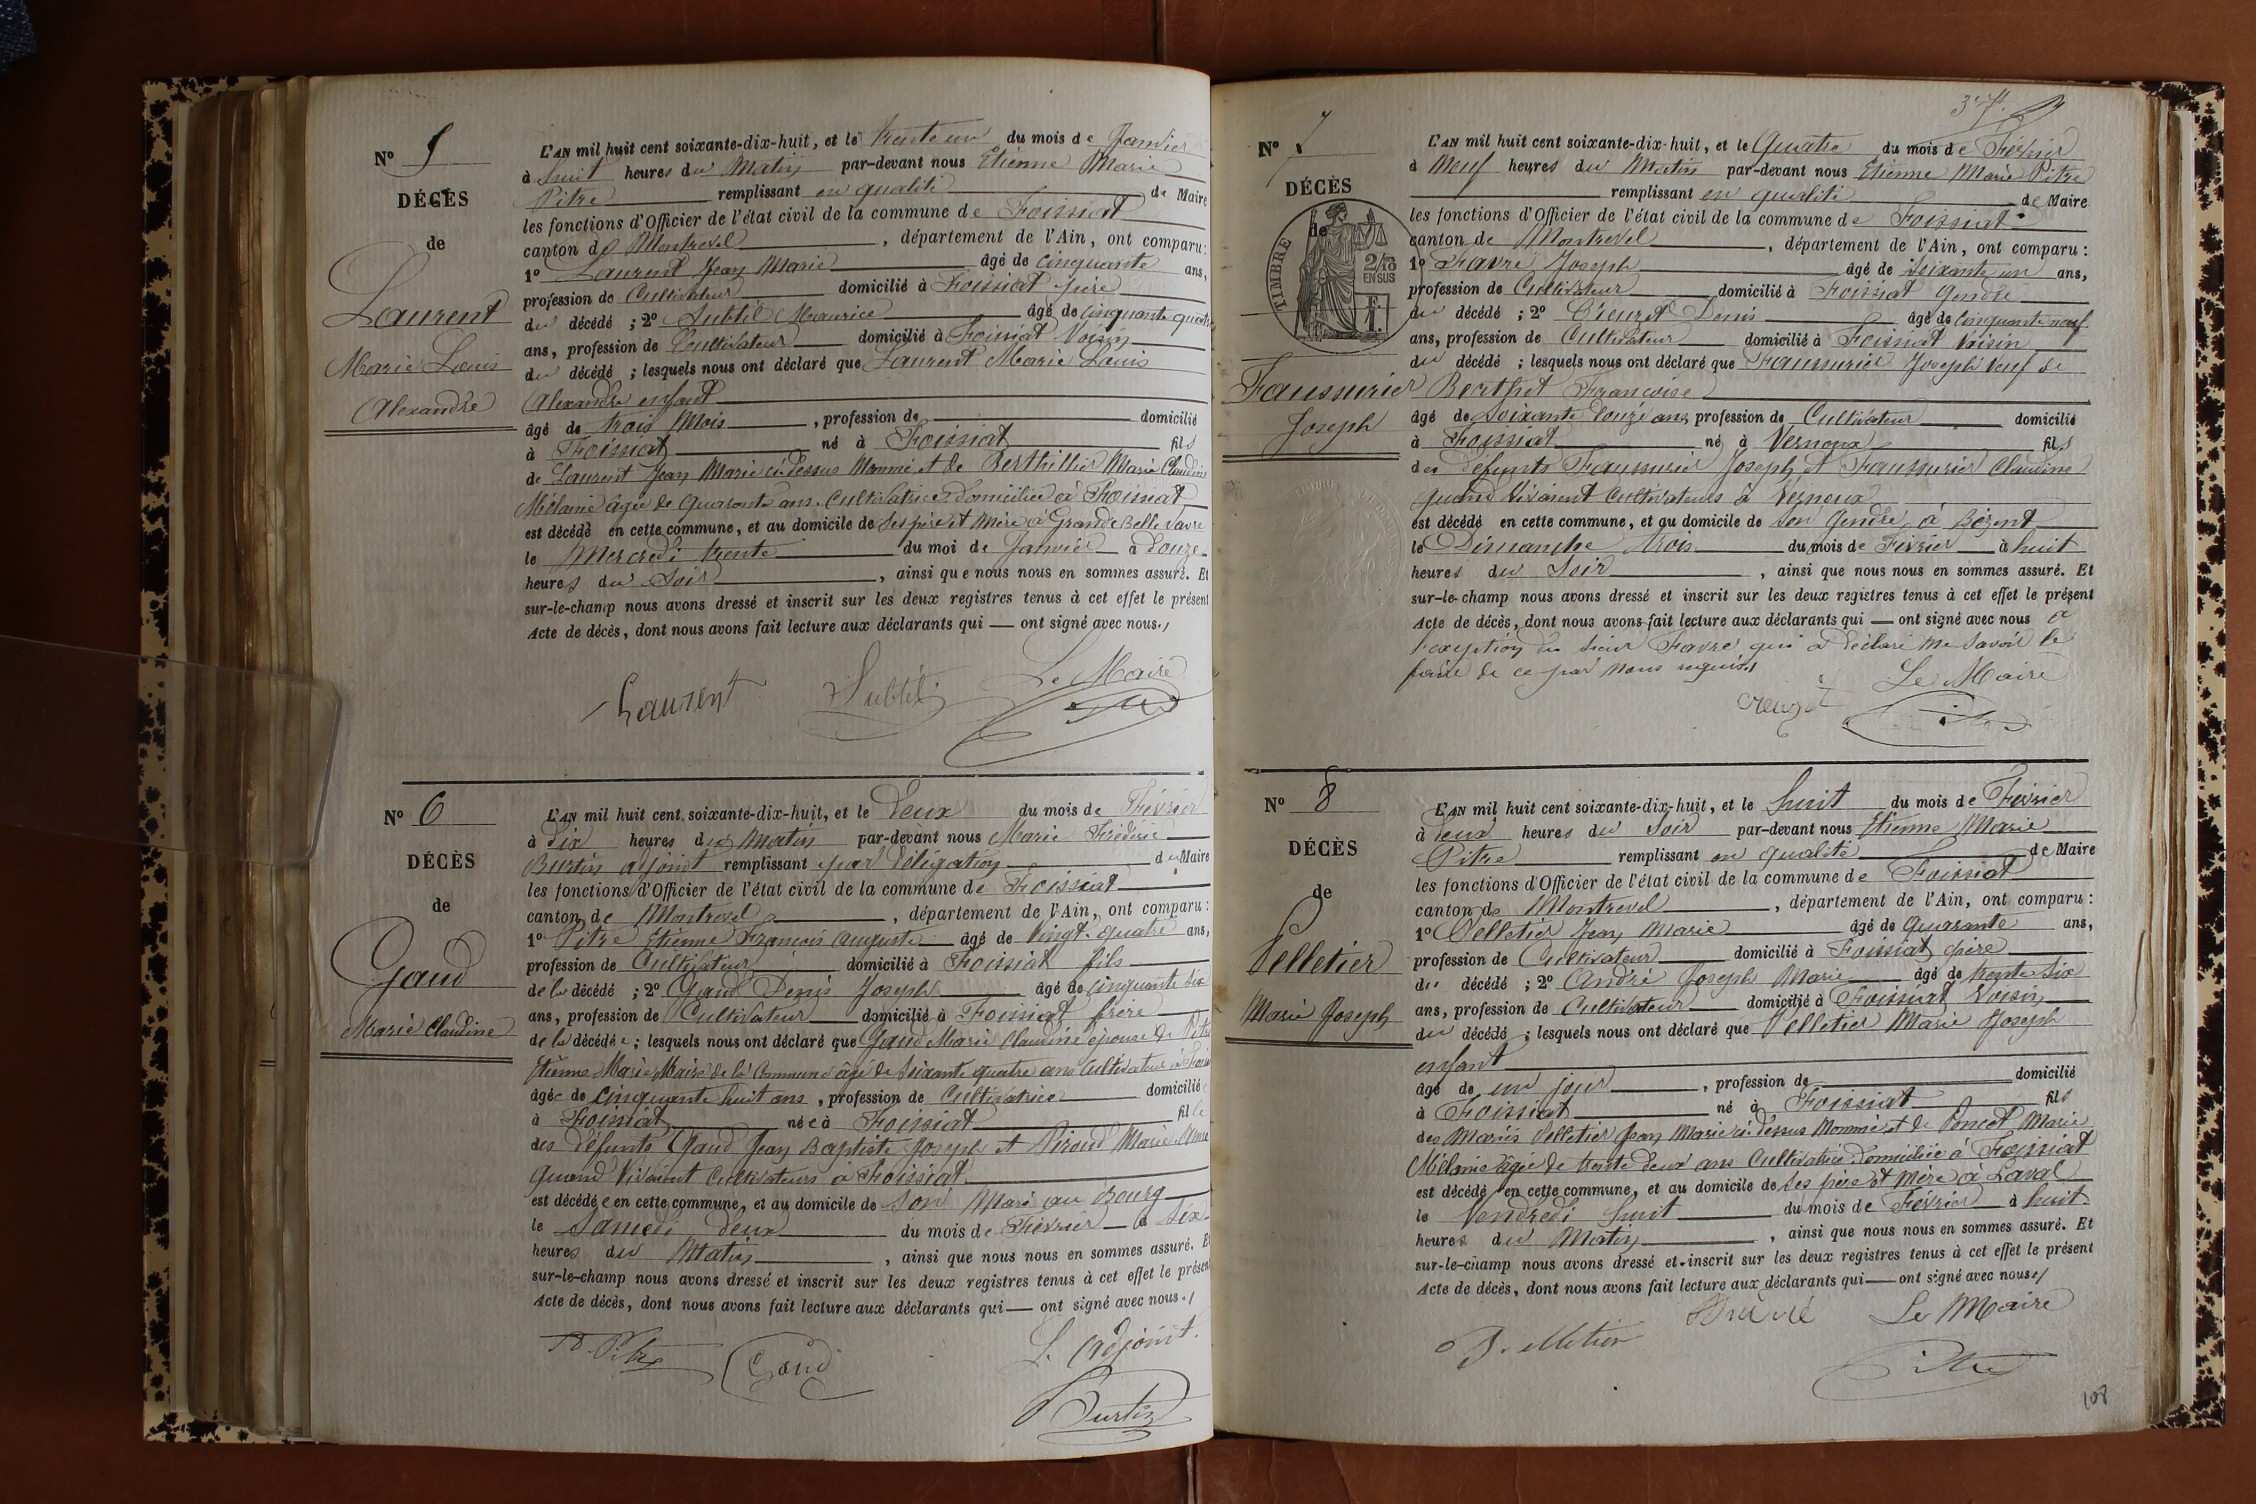 N° 5
DÉCÈS
de
Laurent
Marie Louis
Alexandre
L'AN mil huit cent soixante-dix-huit, et le trente un du mois de Janvier
à huit heures du Matin par-devant nous Etienne Marie
Pitre remplissant en qualité de Maire
les fonctions d'Officier de l'état civil de la commune de Foissiat
canton de Montrevel, département de l'Ain, ont comparu :
1° Laurent Jean Marie âgé de cinquante ans,
profession de Cultivateur domicilié à Foissiat père
du décédé ; 2° Subtil Maurice âgé de cinquante quatre
ans, profession de Cultivateur domicilié à Foissiat Voisin
du décédé ; lesquels nous ont déclaré que Laurent Marie Louis
Alexandre enfant
âgé de trois Mois, profession de domicilié
à Foissiat né à Foissiat fils
de Laurent Jean Marie ci-dessus Nommé et de Berthillier Marie Claudine
Mélanie âgée de quarante ans Cultivatrice domiciliée à Foissiat
est décédé en cette commune, et au domicile de ses père et Mère à Grande Belle Vavre
le Mercredi trente du moi de Janvier à douze
heures du Soir, ainsi que nous nous en sommes assuré. Et
sur-le-champ nous avons dressé et inscrit sur les deux registres tenus à cet effet le présent
Acte de décès, dont nous avons fait lecture aux déclarants qui — ont signé avec nous./
Laurent Subtil Le Maire
N° 6
DÉCÈS
de
Gaud
Marie Claudine
L'AN mil huit cent soixante-dix-huit, et le Deux du mois de Février
à Dix heures du Matin par-devant nous Marie Frédéric
Burtin adjoint remplissant par délégation du Maire
les fonctions d'Officier de l'état civil de la commune de Foissiat
canton de Montrevel, département de l'Ain, ont comparu :
1° Pitre Etienne François Auguste âgé de Vingt-quatre ans,
profession de Cultivateur domicilié à Foissiat fils
de la décédé ; 2° Gaud Denis Joseph âgé de cinquante six
ans, profession de Cultivateur domicilié à Foissiat frère
de la décédée ; lesquels nous ont déclaré que Gaud Marie Claudine épouse de Pitre
Etienne Marie Maire de la Commune âgé de Soixante quatre ans Cultivateur à
âgée de cinquante huit ans, profession de Cultivatrice domicilié
à Foissiat née à Foissiat fille
des défunts Gaud Jean Baptiste Joseph et Piroud Marie Anne
quand Vivaient Cultivateurs à Foissiat
est décédée en cette commune, et au domicile de son Mari au Bourg
le Samedi deux du mois de Février à Six
heures du Matin, ainsi que nous nous en sommes assuré. Et
sur-le-champ nous avons dressé et inscrit sur les deux registres tenus à cet effet le présent
Acte de décès, dont nous avons fait lecture aux déclarants qui — ont signé avec nous./
Pitre Gaud L'adjoint
Burtin
N° 7
DÉCÈS
de
TIMBRE
2/10
EN SUS
Faussurier
Joseph
L'AN mil huit cent soixante-dix-huit, et le Quatre du mois de Février
à Neuf heures du Matin par-devant nous Etienne Marie Pitre
remplissant en qualité de Maire
les fonctions d'Officier de l'état civil de la commune de Foissiat
canton de Montrevel, département de l'Ain, ont comparu :
1° Favre Joseph âgé de Soixante un ans,
profession de Cultivateur domicilié à Foissiat Gendre
du décédé ; 2° Creuzet Denis âgé de cinquante neuf
ans, profession de Cultivateur domicilié à Foissiat Voisin
du décédé ; lesquels nous ont déclaré que Faussurier Joseph Veuf de
Berthet Françoise
âgé de Soixante douze ans, profession de Cultivateur domicilié
à Foissiat né à Vernoux fils
des défunts Faussurier Joseph et Faussurier Claudine
quand Vivaient Cultivateurs à Vernoux
est décédé en cette commune, et au domicile de son Gendre à Bézent
le Dimanche trois du mois de Février à huit
heures du Soir, ainsi que nous nous en sommes assuré. Et
sur-le-champ nous avons dressé et inscrit sur les deux registres tenus à cet effet le présent
Acte de décès, dont nous avons fait lecture aux déclarants qui — ont signé avec nous à
l'exception du sieur Favre qui a déclaré ne savoir le
faire de ce par nous requis./
Creuzet Le Maire
Pitre
N° 8
DÉCÈS
de
Pelletier
Marie Joseph
L'AN mil huit cent soixante-dix-huit, et le huit du mois de Février
à deux heures du Soir par-devant nous Etienne Marie
Pitre remplissant en qualité de Maire
les fonctions d'Officier de l'état civil de la commune de Foissiat
canton de Montrevel, département de l'Ain, ont comparu :
1° Pelletier Jean Marie âgé de Quarante ans,
profession de Cultivateur domicilié à Foissiat père
du décédé ; 2° André Joseph Marie âgé de trente six
ans, profession de Cultivateur domicilié à Foissiat Voisin
du décédé ; lesquels nous ont déclaré que Pelletier Marie Joseph
enfant
âgé de un jour, profession de domicilié
à Foissiat né à Foissiat fils
des Mariés Pelletier Jean Marie ci-dessus Nommé et de Poncet Marie
Mélanie âgée de trente deux ans Cultivatrice domiciliée à Foissiat
est décédé en cette commune, et au domicile de ses père et Mère à Laval
le Vendredi huit du mois de Février à huit
heures du Matin, ainsi que nous nous en sommes assuré. Et
sur-le-champ nous avons dressé et inscrit sur les deux registres tenus à cet effet le présent
Acte de décès, dont nous avons fait lecture aux déclarants qui — ont signé avec nous./
André Le Maire
Pitre
108